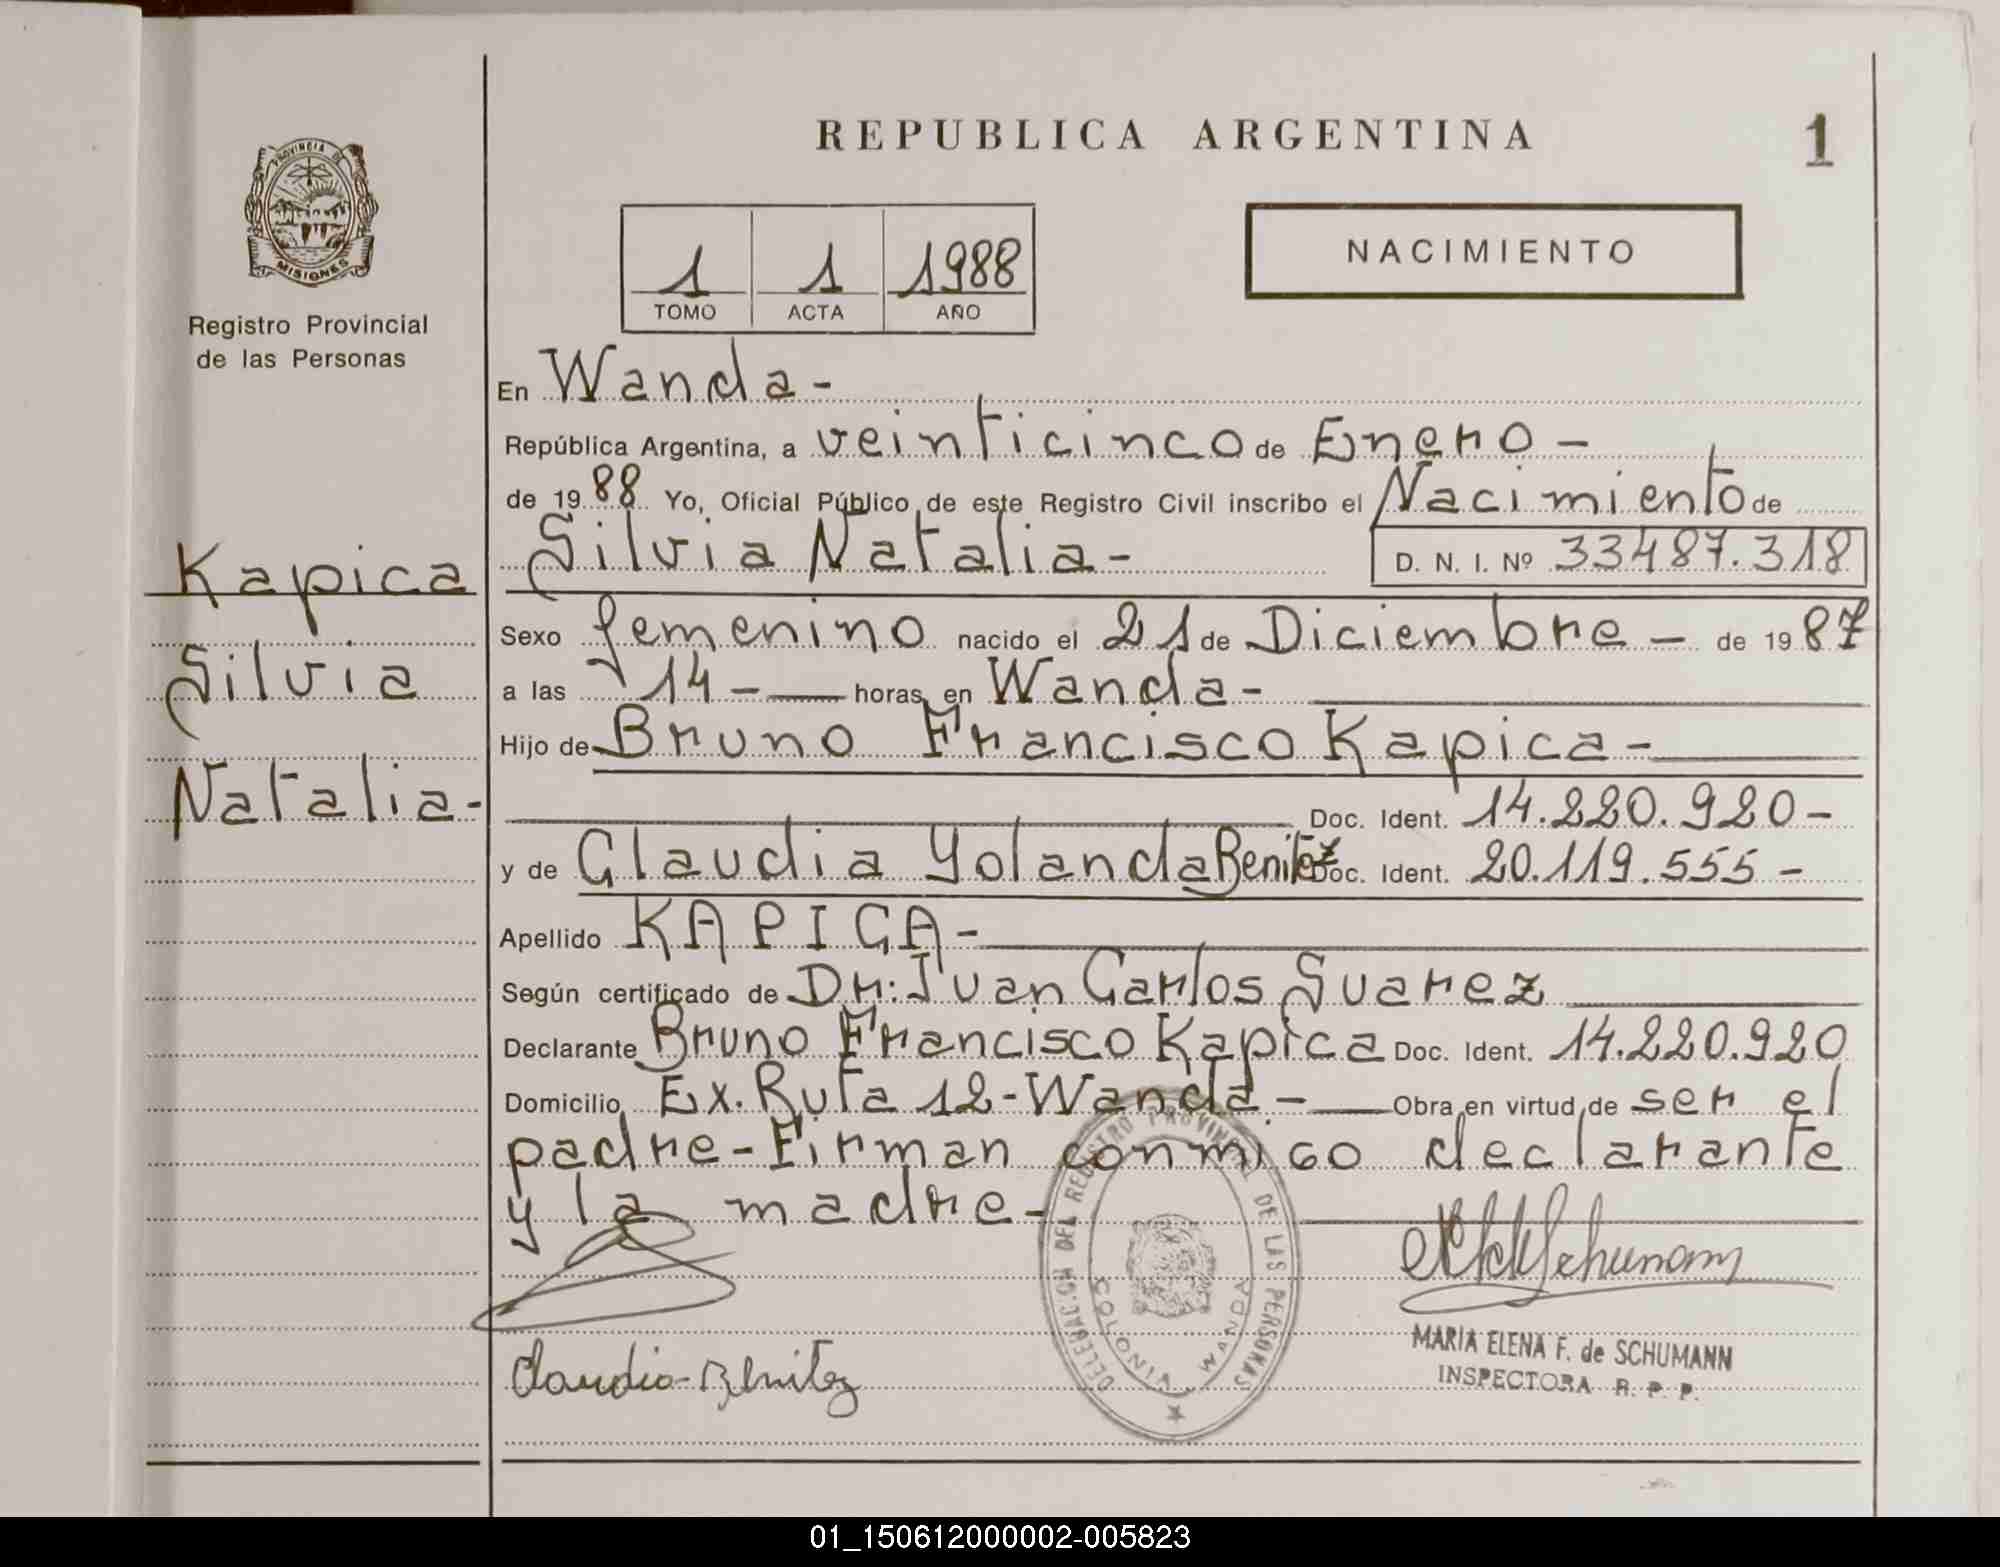 REPUBLICA ARGENTINA
1
PROVINCIA DE
MISIONES
Registro Provincial
de las Personas
1 1 1988
TOMO ACTA AÑO
NACIMIENTO
En Wanda-
República Argentina, a veinticinco de Enero -
de 19 88 Yo, Oficial Público de este Registro Civil inscribo el Nacimiento de
Silvia Natalia-
D. N. I. Nº 33487.318
Kapica
Silvia
Natalia-
Sexo femenino nacido el 21 de Diciembre - de 19 87
a las 14 - horas, en Wanda-
Hijo de Bruno Francisco Kapica-
Doc. Ident. 14.220.920-
y de Claudia Yolanda Benitez Doc. Ident. 20.119.555-
Apellido KAPICA-
Según certificado de Dr: Juan Carlos Suarez
Declarante Bruno Francisco Kapica Doc. Ident. 14.220.920
Domicilio Ex. Ruta 12-Wanda- Obra en virtud de ser el
padre-Firman conmigo declarante
y la madre-
Claudia Benitez
DELEGACION DEL REGISTRO PROVINCIAL DE LAS PERSONAS
COLONIA WANDA
Schumann
MARIA ELENA F. de SCHUMANN
INSPECTORA R. P. P.
01_150612000002-005823